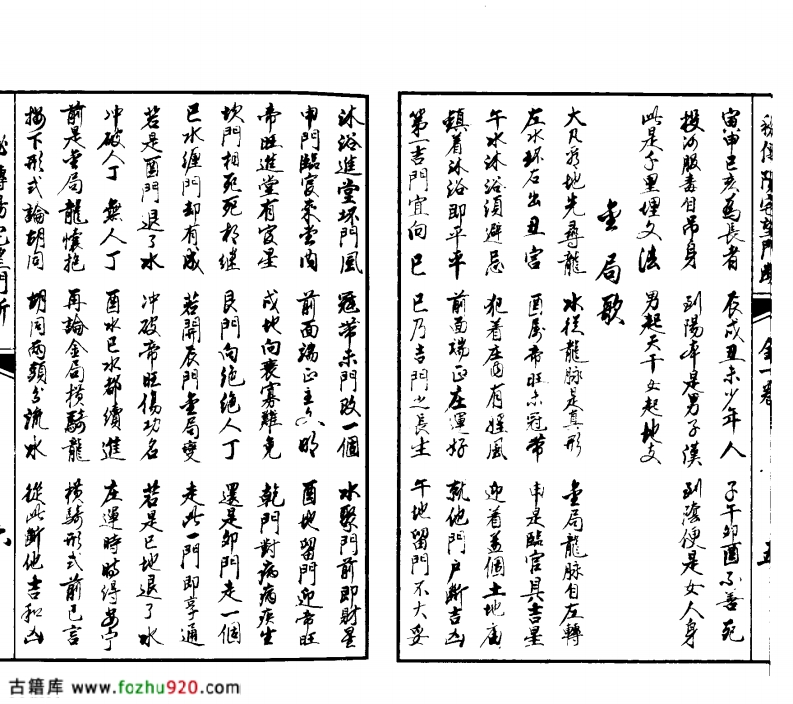 秘傳陽宅望門斷 全一卷 五
寅申巳亥為長者 辰戌丑未少年人 子午卯酉不善死
投河服毒自吊身 到陽年是男子漢 到陰便是女人身
此是千里埋文法 男起天干女起地支
金局歌
大凡看地先尋龍 水從龍脉是真形 金局龍脉自左轉
左水环右出丑宮 酉屬帝旺未冠帶 申是臨官具吉星
午水沐浴須避忌 犯着庄內有婬風 迎着蓋個土地廟
鎮着沐浴即平平 前面端正庄運好 就他門户斷吉凶
第一吉門宜向巳 巳乃吉門之長生 午地留門不大妥
沐浴進堂坏門風 冠帶未門改一個 水聚門前即財星
申門臨官來堂內 前面端正主大明 酉地留門迎帝旺
帝旺進堂有官星 戌地向衰寡難免 乾門對病病疾生
坎門相死死相繼 艮門向绝绝人丁 還是卯門走一個
巳水纏門却有成 若開辰門金局變 走此一門即亨通
若是酉門退了水 冲破帝旺傷功名 若是巳地退了水
冲破人丁無人丁 酉水巳水都續進 庄運時時得安宁
前是金局龍懷抱 再論金局橫騎龍 橫騎形式前已言
按下形式論胡同 胡同兩頭分流水 從此斷他吉和凶
傳陽宅望門斷 六
古籍库 www.fozhu920.com